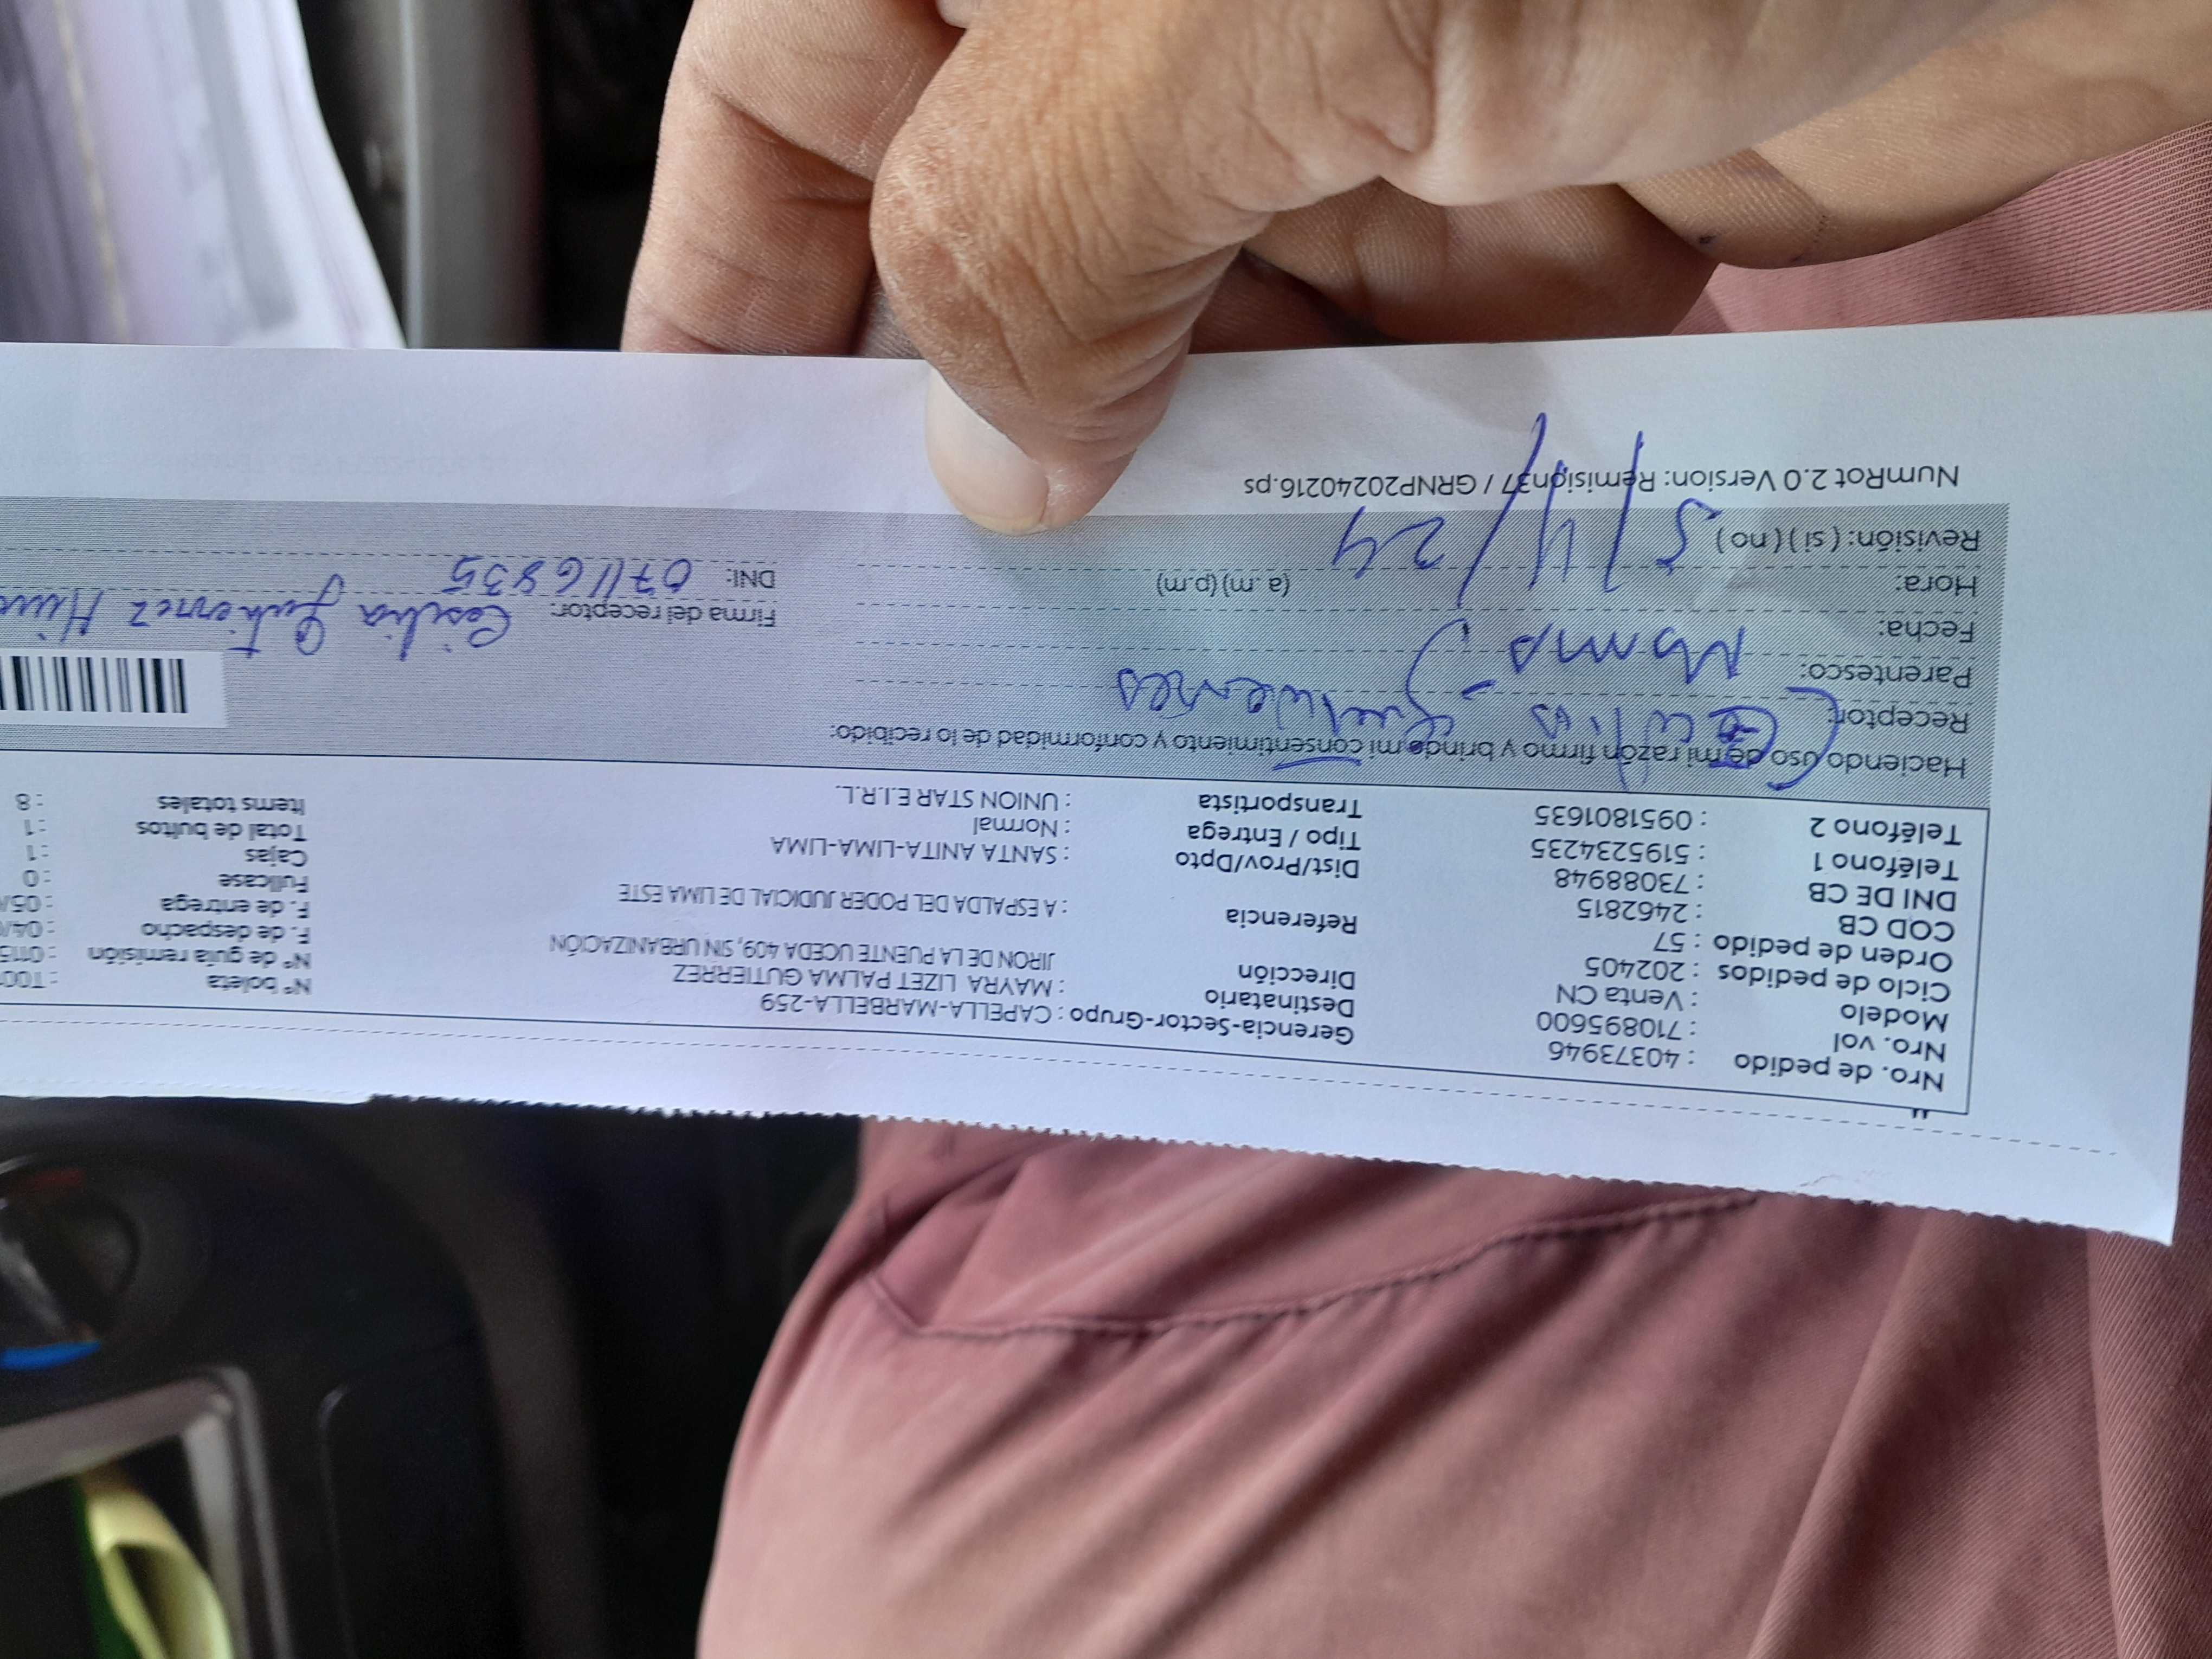 Nro. de pedido : 40373946
Nro. vol : 710895600
Modelo : Venta CN
Ciclo de pedidos : 202405
Orden de pedido : 57
COD CB : 2462815
DNI DE CB : 73088948
Teléfono 1 : 5195234235
Teléfono 2 : 0951801635
Gerencia-Sector-Grupo : CAPELLA-MARBELLA-259
Destinatario : MAYRA LIZET PALMA GUTIERREZ
Dirección JIRON DE LA PUENTE UCEDA 409, SIN URBANIZACIÓN
Referencia : A ESPALDA DEL PODER JUDICIAL DE LIMA ESTE
Dist/Prov/Dpto : SANTA ANITA-LIMA-LIMA
Tipo / Entrega : Normal
Transportista : UNION STAR E.I.R.L.
N° boleta : T00
N° de guía remisión : 0115
F. de despacho : 04/
F. de entrega : 05/
Fullcase : 0
Cajas : 1
Total de bultos : 1
Items totales : 8
Haciendo uso de mi razón firmo y brindo mi consentimiento y conformidad de lo recibido:
Receptor:
Parentesco: Mamá
Fecha:
Hora: (a.m) (p.m)
Revisión: ( si ) ( no ) 5/4/24
Firma del receptor: Cecilia Gutierrez
DNI: 07116835
NumRot 2.0 Version: Remision37 / GRNP20240216.ps